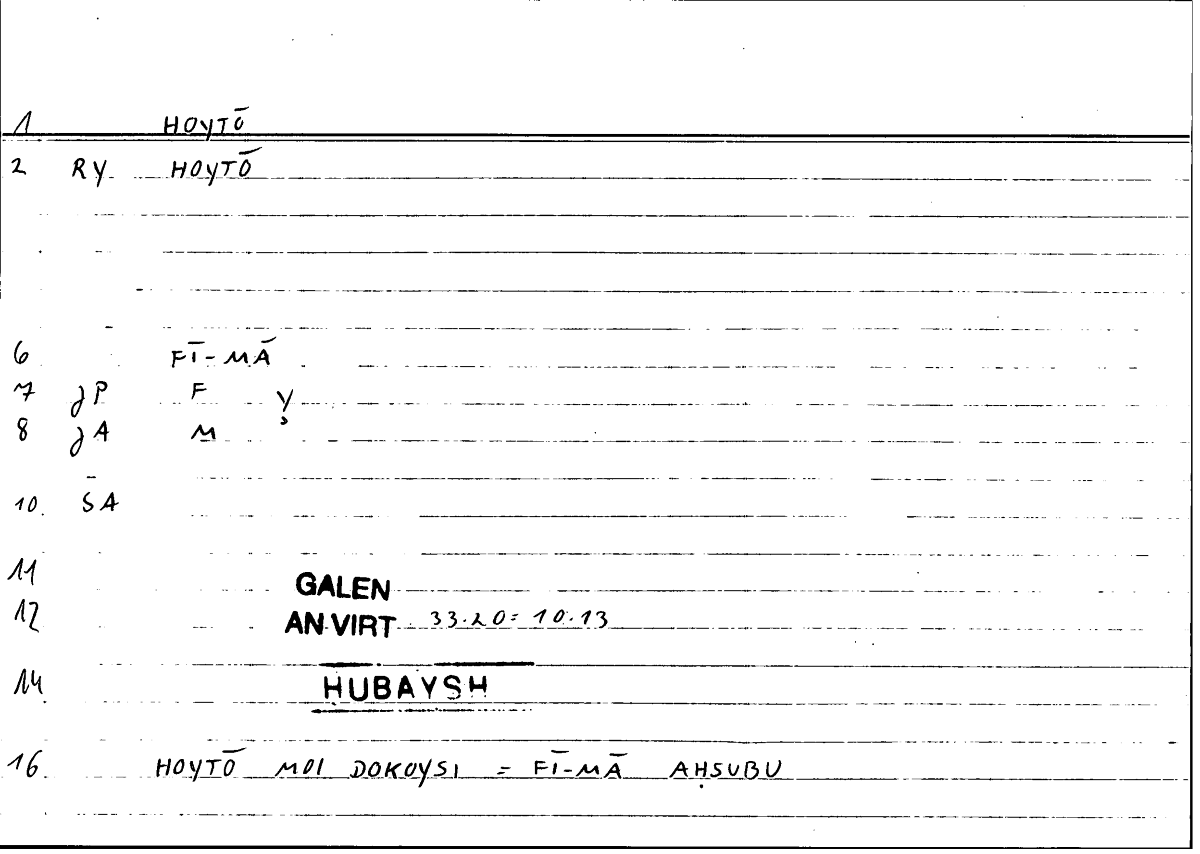 1 HOYTŌ
2 RY HOYTŌ
6 FĪ-MĀ
7 JP F Y
8 JA M
10. SA
11 GALEN
12 AN.VIRT 33.20= 10.13
14 HUBAYSH
16. HOYTŌ MOI DOKOYSI = FĪ-MĀ AḤSUBU